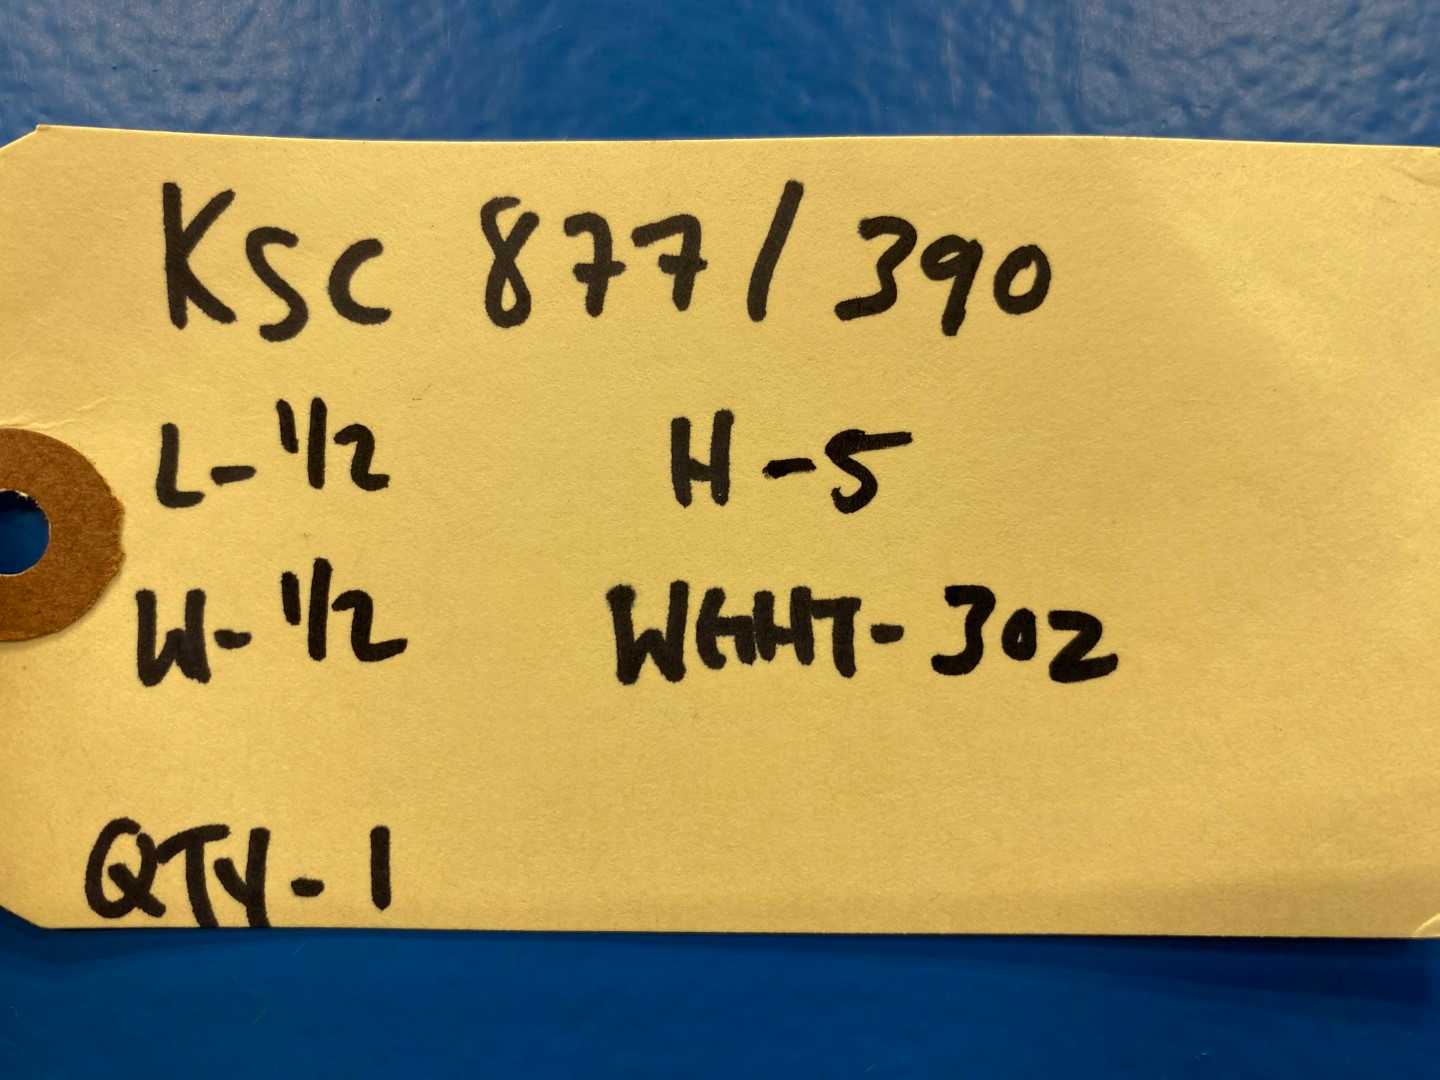 KSC 877/390
L-1/2 H-5
W-1/2 WGHT-3oz
QTY-1